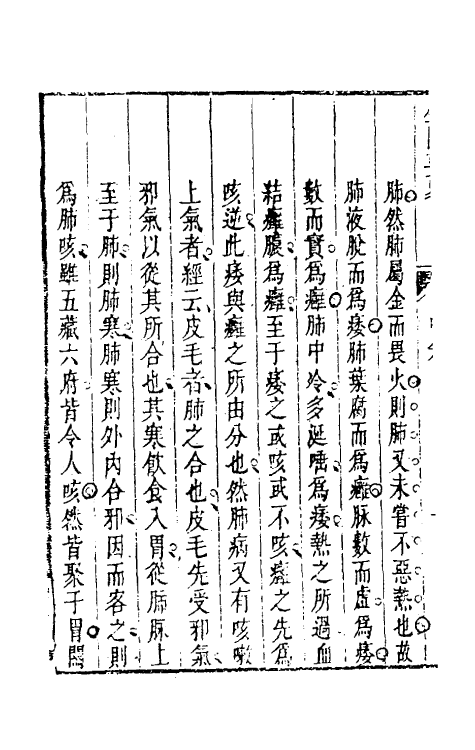 肺然肺屬金而畏火則肺又未嘗不惡熱也故
肺液脫而為痿肺葉腐而為癰脉數而虛為痿
數而實為癰肺中冷多涎唾為痿熱之所過血
結癰膿為癰至于痿之或咳或不咳癰之先為
咳逆此痿與癰之所由分也然肺病又有咳嗽
上氣者經云皮毛者肺之合也皮毛先受邪氣
邪氣以從其所合也其寒飲食入胃從肺脉上
至于肺則肺寒肺寒則外內合邪因而客之則
為肺咳雖五藏六府皆令人咳然皆聚于胃關